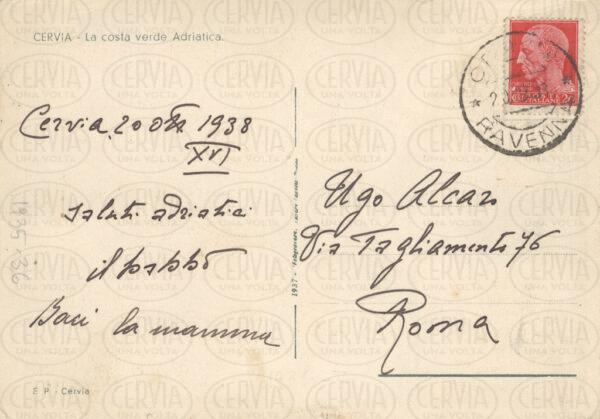 CERVIA - La costa verde Adriatica.
Cervia, 20 Ott 1938
XVI
saluti adriatici
il babbo
Baci la mamma
Ugo Alcaro
Via Tagliamento 76
Roma
RAVENNA
ITALIANE
1937
1935-36
E P - Cervia
CERVIA
UNA VOLTA